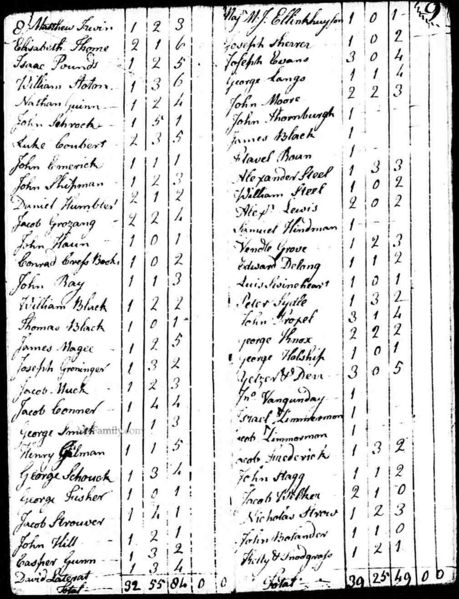 Matthew Irwin 1 2 3
Elisabeth Thome 2 1 6
Isaac Pounds 1 2 5
William 1 3 6
Nathan Guinn 1 2 4
John Schrock 1 5 1
Luke Coubert 2 3 5
John Emerick 1 1 1
John Shitman 1 2 3
Daniel Humbler 2 1 2
Jacob Grozang 2 2 4
John Haun 1 0 1
Conrad Book 1 0 2
John Ray 1 1 3
William Black 1 2 2
Thomas Black 1 0 1
James Magee 1 2 5
Joseph Groninger 1 3 2
Jacob Muck 1 2 3
Jacob Conner 1 4 4
George Smith 1 3
Henry Gilman 1 1 5
George Schouck 1 3 4
George Fisher 1 0 1
Jacob Strouver 1 4 1
John Hill 1 2 1
Casper Gunn 1 3 2
David 1 3 4
Total 32 55 84 0 0
9
Maj. W. J. 1 0 1
Joseph Shearer 1 0 2
Joseph Evans 3 0 4
George Lango 1 1 4
John Moore 2 2 3
John Thornburgh 1
James Black 1
1
Alexander Steel 1 3 3
William Steel 1 0 2
Alexr Lewis 2 0 2
Samuel Hindman 1
Vendle Grove 1 2 3
Edward Delong 1 1 2
Luis 1 0 1
Peter 1 3 2
John 3 1 4
George Knox 2 2 2
George Holship 1 0 1
3 0 5
Jno Vangunday 1
Israel Zimmerman 1
Jacob Zimmorman 1
Jacob Frederick 1 3 2
John Stagg 1 1 2
Jacob 2 1 0
Nicholas Strew 1 2 3
John Bolander 1 1 0
Kelly & Snodgrass 1 2 1
Total 39 25 49 0 0